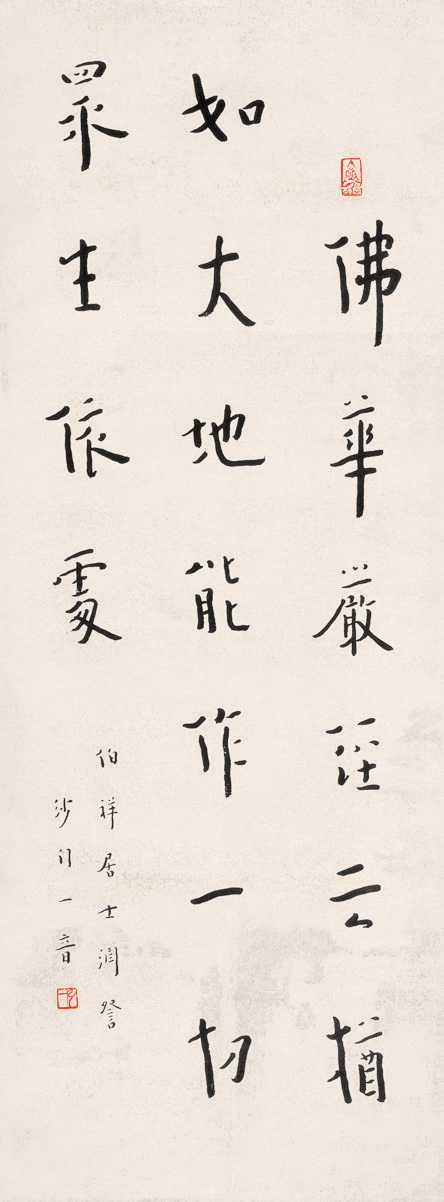 佛華嚴經云猶
如大地能作一切
眾生依處
伯祥居士淵詧
沙門一音
弘一